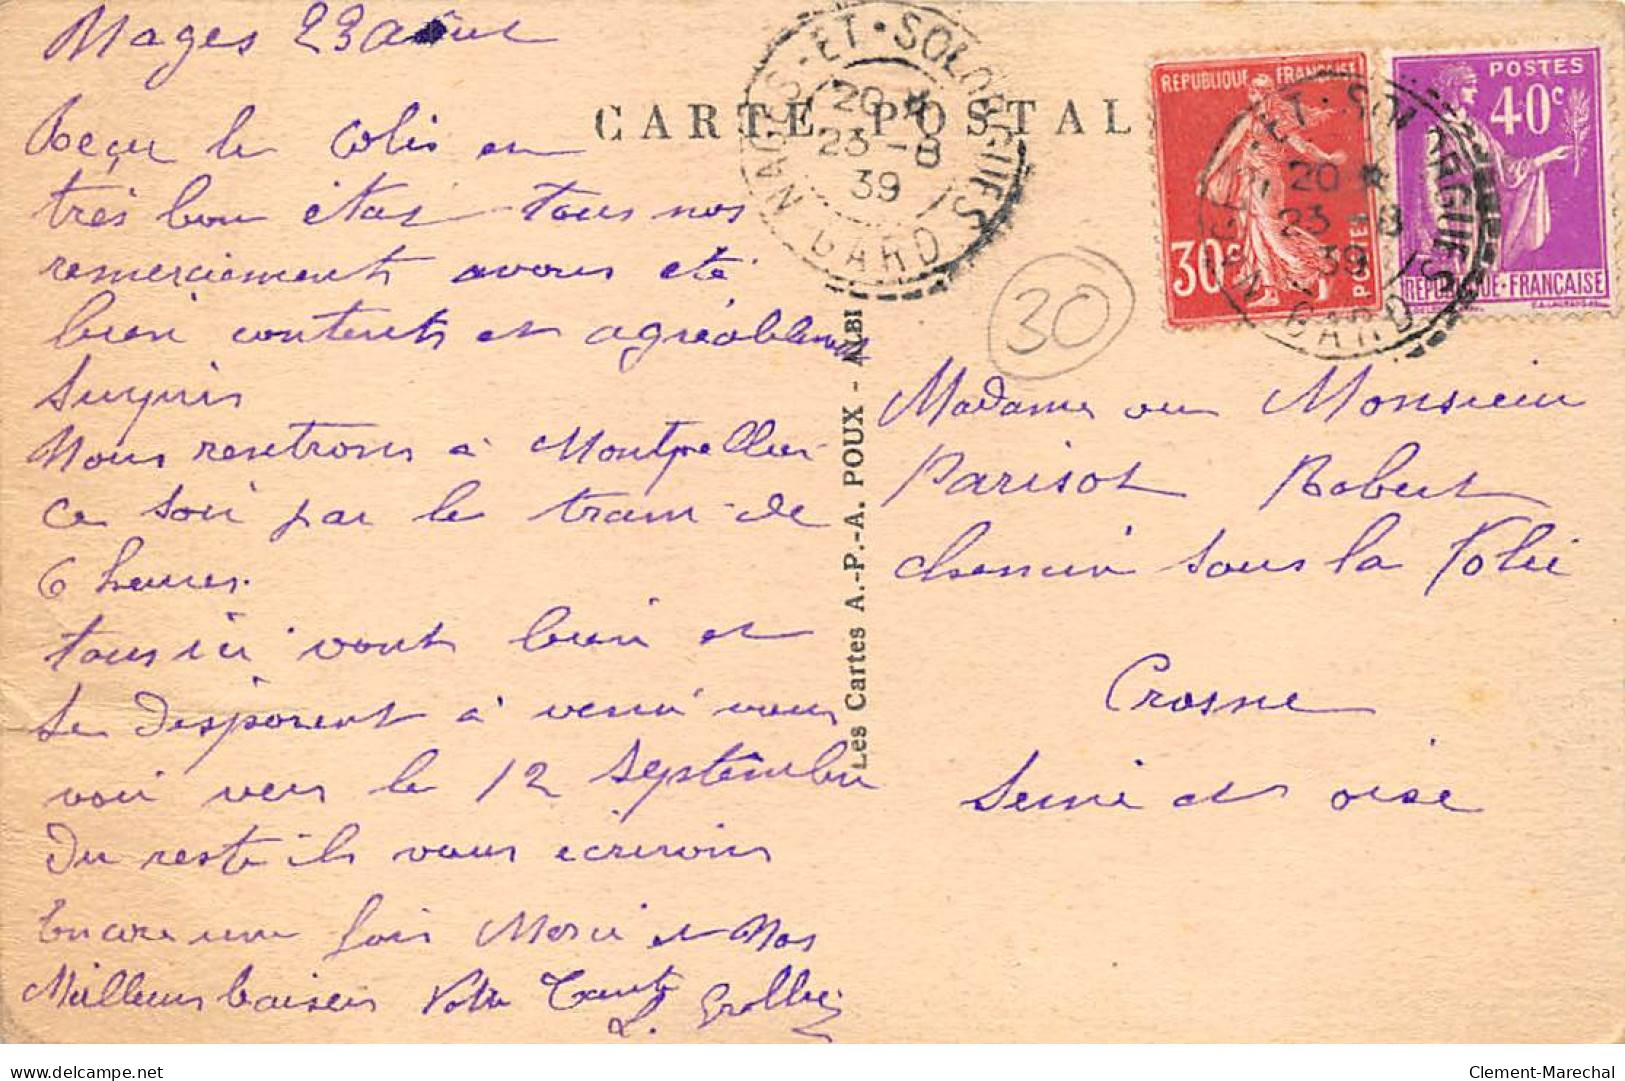 Nages 23 aout
Reçu le Colis en
très bon état tous nos
remerciements avons été
bien contents et agréablement
Surpris
Nous rentrons à Montpellier
ce soir par le tram de
6 heures.
tous ici vont bien et
Se disposent à venir vous
voir vers le 12 Septembre
Du reste ils vous écrirons
Encore une fois Merci et Nos
Meilleurs baisers Votre Tante
L.
CARTE POSTALE
NAGES-ET-SOLORGUES
20 *
23 - 8
39
GARD
30
Les Cartes A.-P.-A. POUX - ALBI
REPUBLIQUE FRANÇAISE
30c
POSTES
POSTES
40c
REPUBLIQUE-FRANÇAISE
NAGES-ET-SOLORGUES
20 *
23 - 8
39
GARD
Madame ou Monsieur
Parisot Robert
chemin sous la Folie
Crosne
Seine et oise
Clement-Marechal